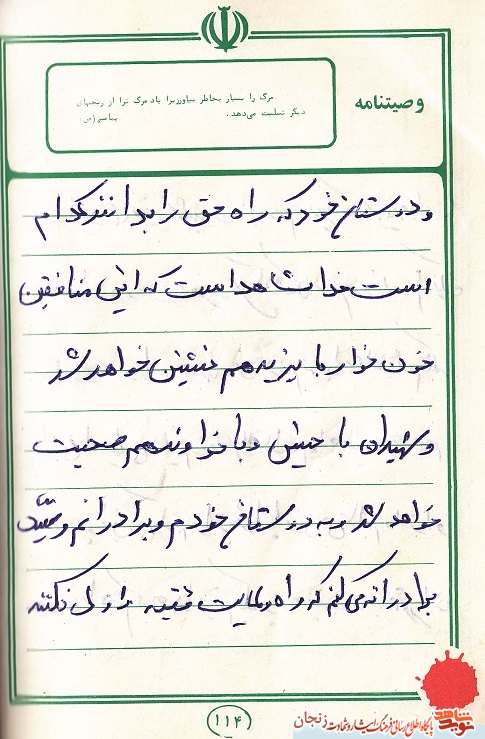 وصیتنامه
مرگ را بسیار بخاطر بیاورزیرا یاد مرگ ترا از رنجهای
دیگر تسلیت می‌دهد.
پیامبر(ص)
و دوستان خود که راه حق را بدانند کدام
است خدا شاهد است که این منافقین
خون خوار با یزید هم نشین خواهد شد
و شهیدان با حسین و با خداوند هم صحبت
خواهد شد و به دوستان خودم و برادرانم وصیت
برادرانه می کنم که راه ولایت فقیه را ول نکنند
۱۱۴
نوید شاهد
پایگاه اطلاع رسانی فرهنگ ایثار و شهادت زنجان